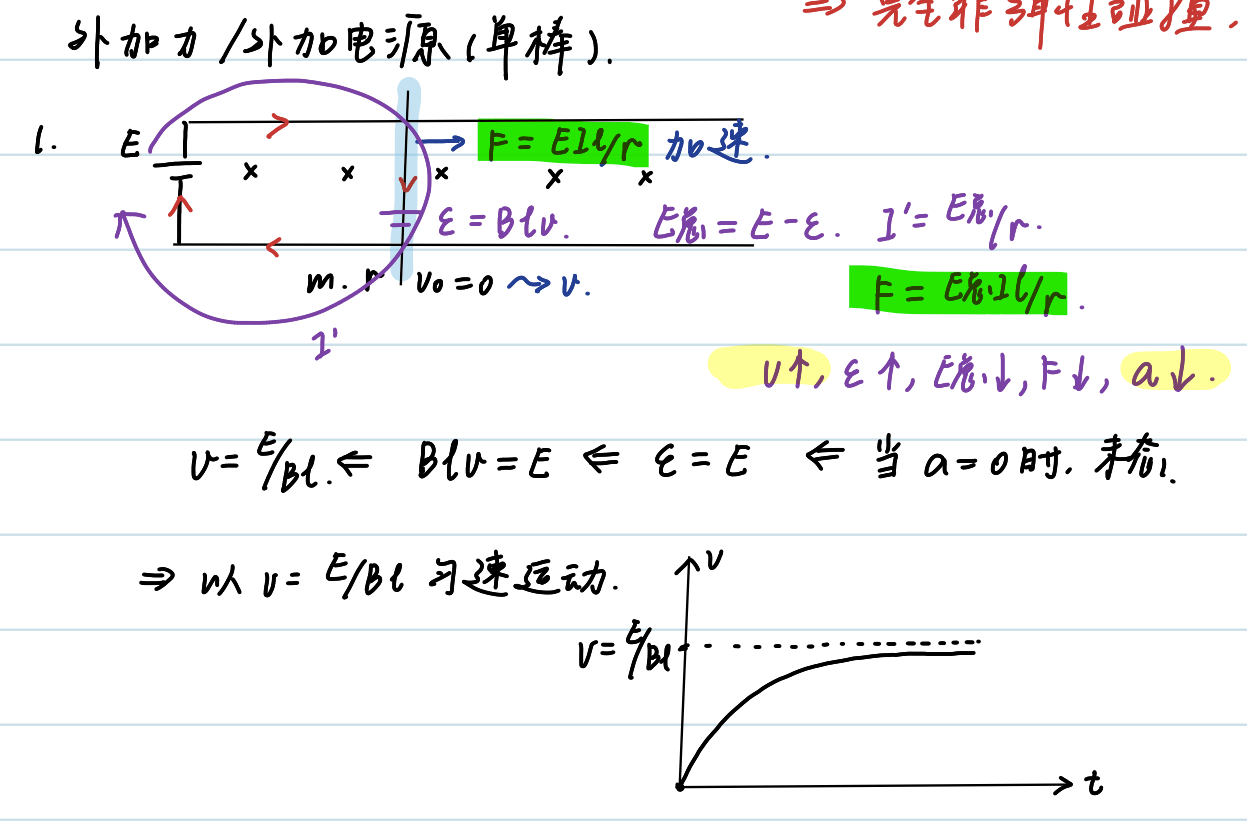 ⇒ 完全非弹性碰撞.
外加力/外加电源(单棒).
1. E
F = EIl/r 加速.
× × × × ×
ε = Blv. E总 = E - ε. I' = E总/r.
m. r v₀ = 0 ⇝ v.
F = E总Il/r.
I'
v↑, ε↑, E总↓, F↓, a↓.
v = E/Bl. ⇐ Blv = E ⇐ ε = E ⇐ 当 a = 0 时.
⇒ 以 v = E/Bl 匀速运动.
v
v = E/Bl
t